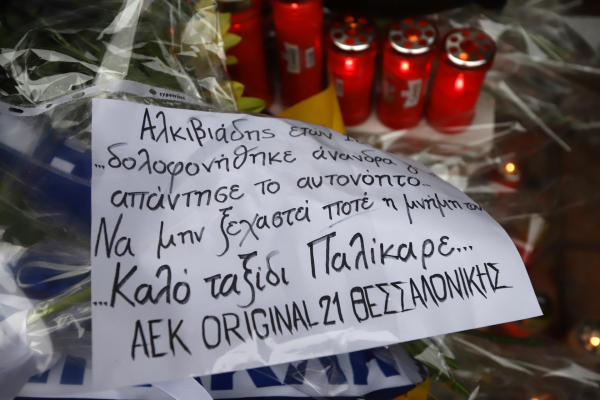 Αλκιβιάδης ετών
...δολοφονήθηκε άνανδρα
απάντησε το αυτονόητο...
Να μην ξεχαστεί ποτέ η μνήμη του
...Καλό ταξίδι Παλίκαρε...
ΑΕΚ ORIGINAL 21 ΘΕΣΣΑΛΟΝΙΚΗΣ